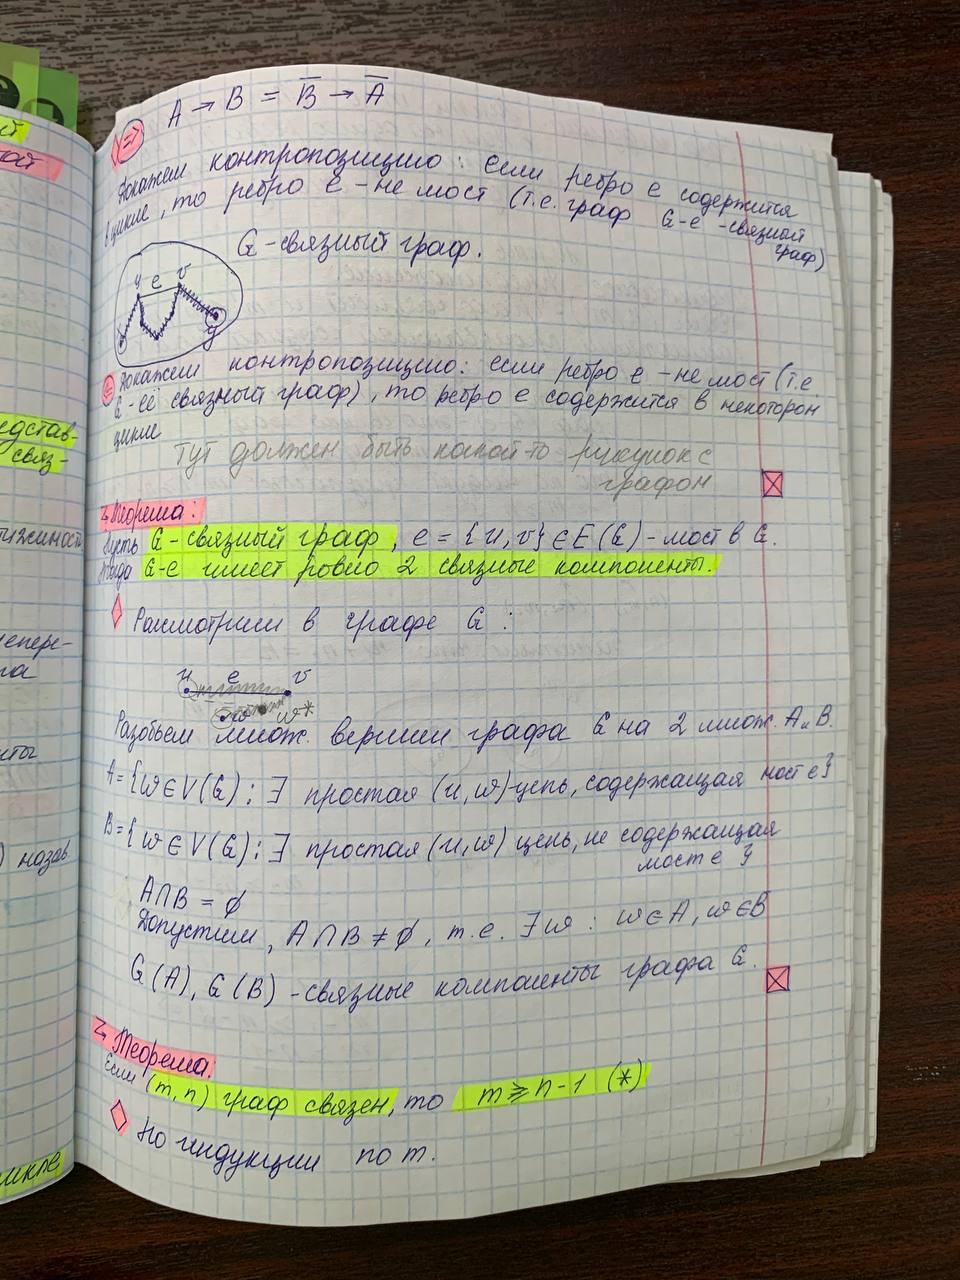 A → B = B̅ → A̅
⇒)
Докажем контропозицию: если ребро e содержится
в цикле, то ребро e - не мост (т.е. граф G-e - связный
граф)
G - связный граф.
u e v
y
⇐ Докажем контропозицию: если ребро e - не мост (т.е
G - её связный граф), то ребро e содержится в некотором
цикле
Тут должен быть какой-то рисунок с
графом
Теорема:
Пусть G - связный граф, e = {u, v} ∈ E(G) - мост в G.
Тогда G-e имеет ровно 2 связные компоненты.
Рассмотрим в графе G:
u e v
w w*
Разобьем множ. вершин графа G на 2 множ. A и B.
A = {w ∈ V(G): ∃ простая (u, w)-цепь, содержащая мост e}
B = {w ∈ V(G): ∃ простая (u, w) цепь, не содержащая
мост e }
A∩B = ∅
Допустим, A∩B ≠ ∅, т.е. ∃ w : w ∈ A, w ∈ B
G(A), G(B) - связные компоненты графа G.
Теорема:
Если (m, n) граф связен, то m ⩾ n-1 (*)
По индукции по m.
той
едстав-
связ-
тижимость
епере-
та
нты
) назав
цикле,